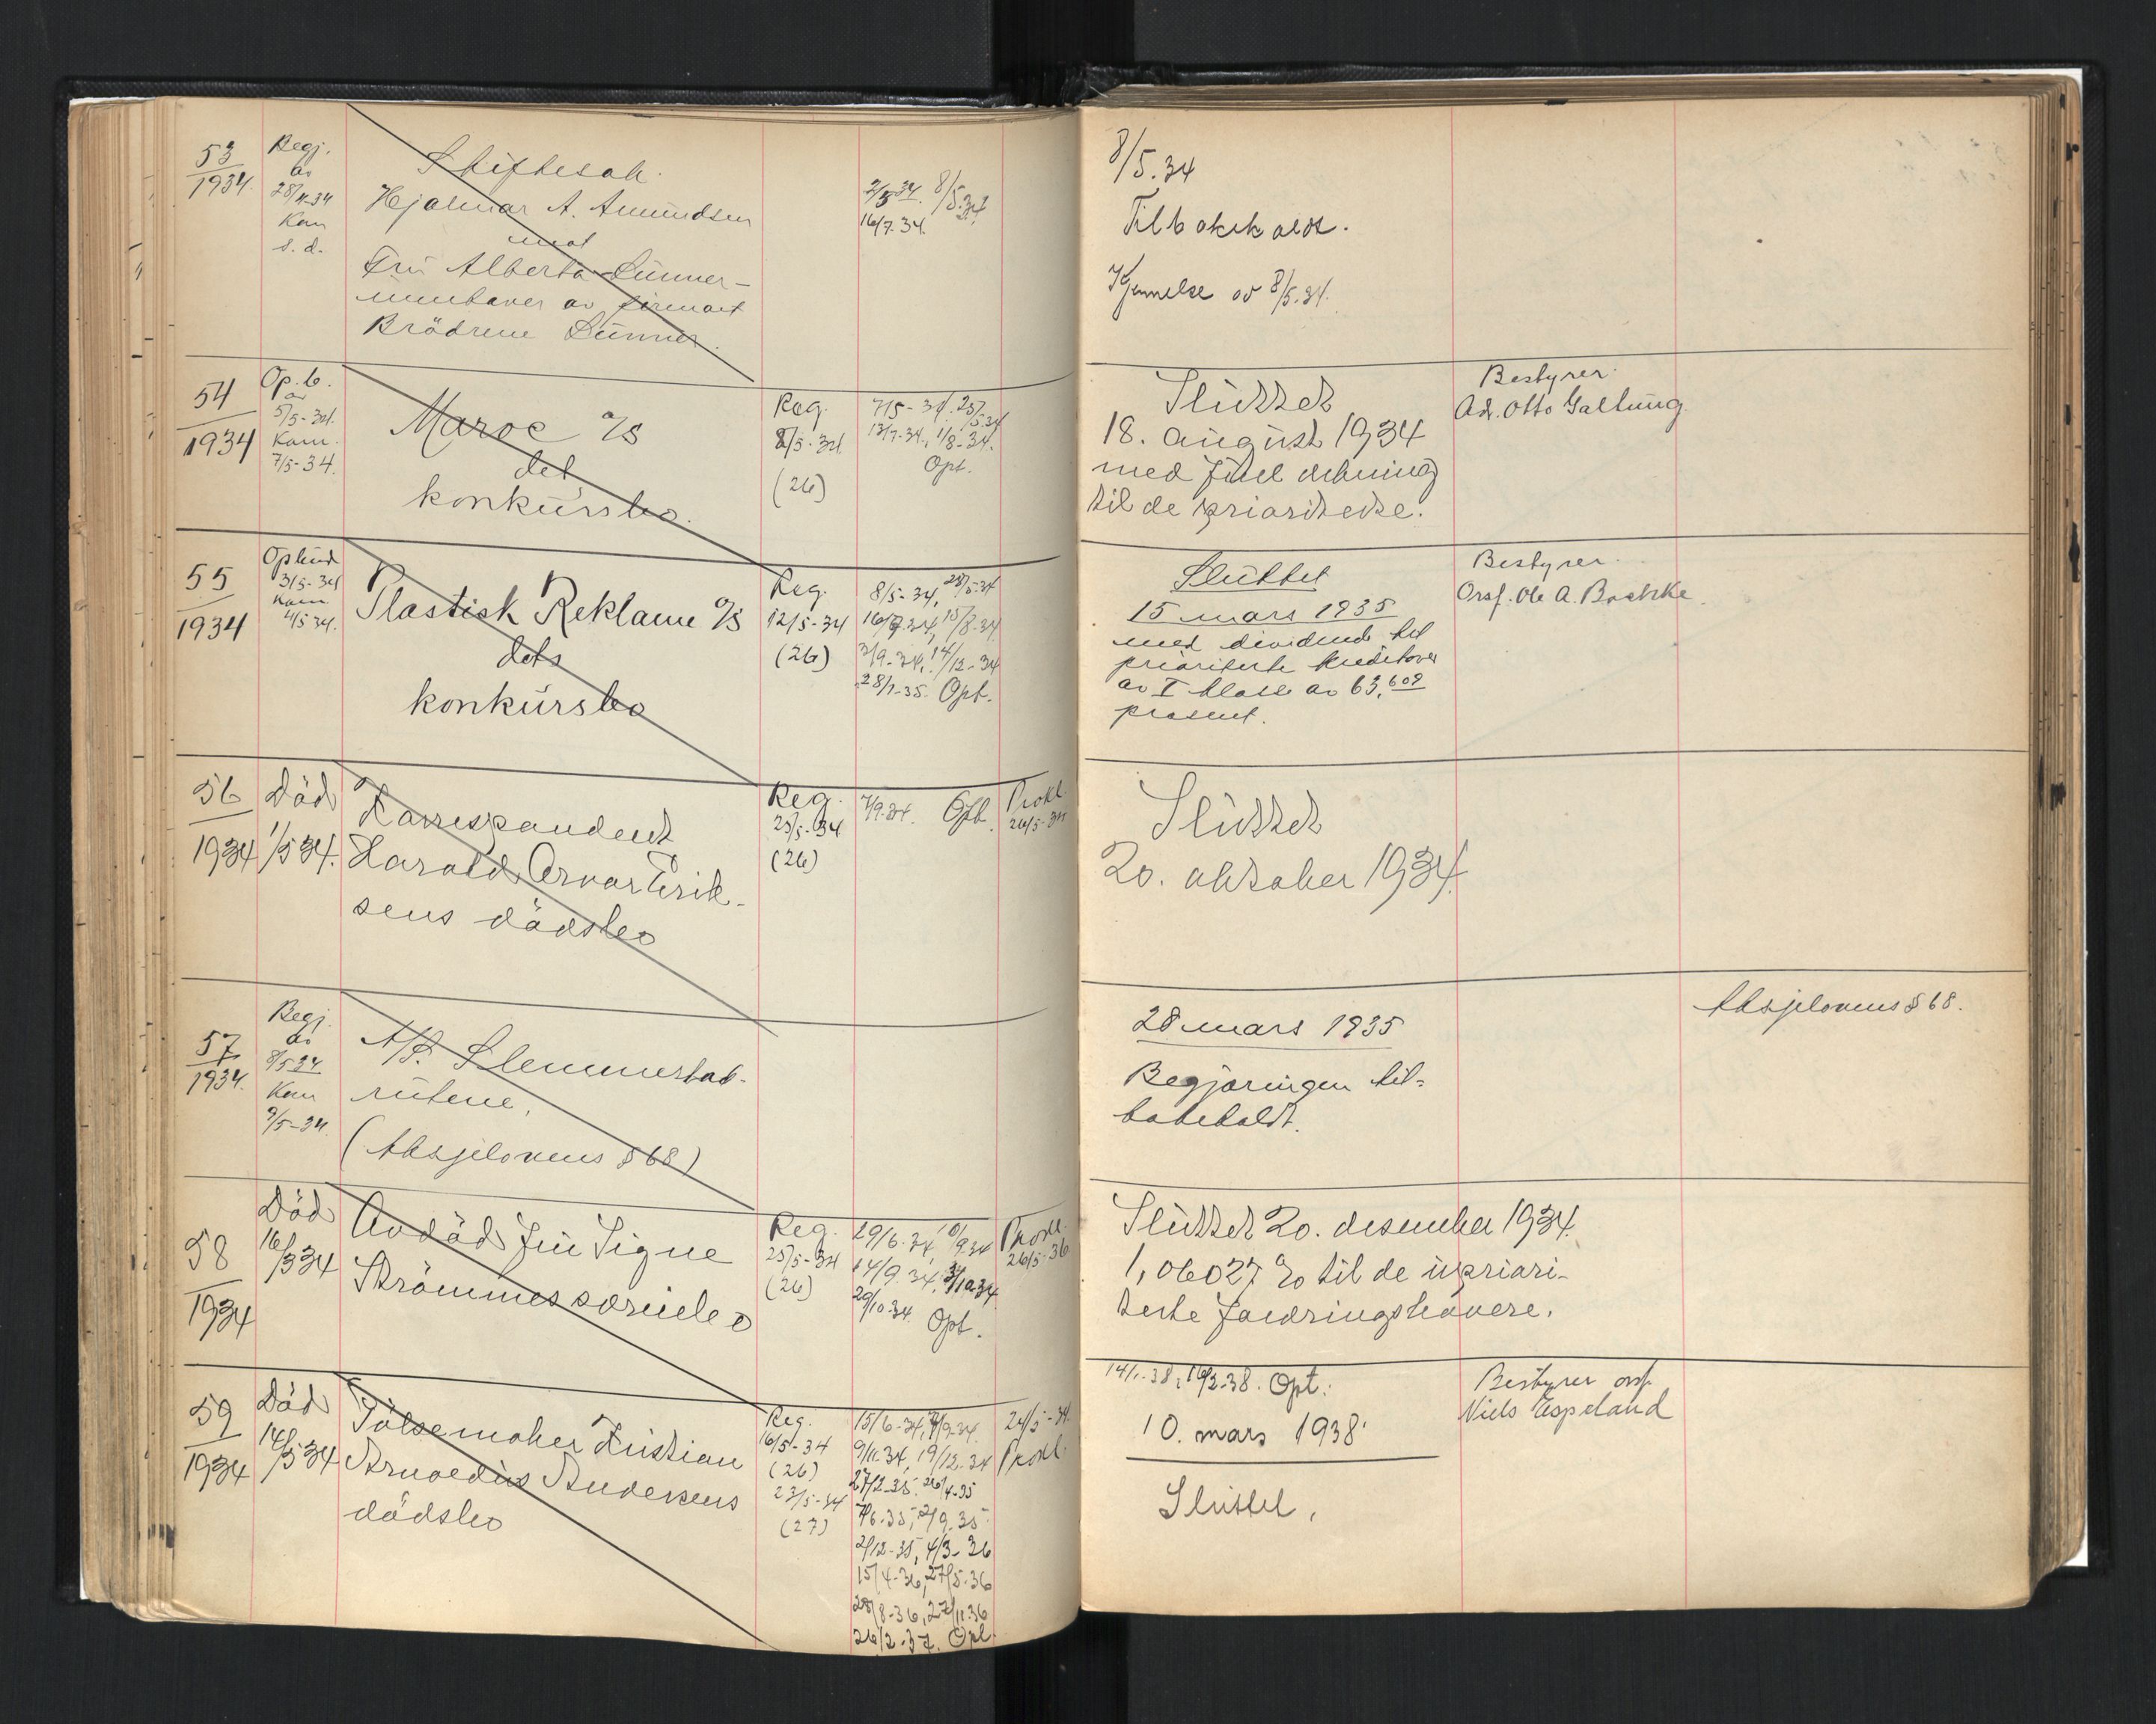 53
1934.
Begj.
av
28/4-34
Kom
s. d.
Skiftesak.
Hjalmar A. Amundsen
mot
Fru Alberta Lunner-
innehaver av firmaet
Brödrene Lunner.
2/5 34. 8/5.34
16/7.34.
8/5.34
Tilbakekaldt.
Kjennelse av 8/5.34.
54
1934
Op. b.
av
5/5-34.
Kom.
7/5-34.
Maroc A/S
det
konkursbo.
Reg.
8/5-34
(26)
7/5-34. 25/5.34
13/7-34., 1/8-34.
Opt.
Sluttet
18. august 1934
med full dekning
til de prioriterte.
Bestyrer.
Adv. Otto Galtung.
55
1934
Opbud
3/5-34
Kom.
4/5 34.
Plastisk Reklame A/S
dets
konkursbo
Reg.
12/5-34
(26)
8/5-34, 28/5-34
16/7.34, 15/8-34
3/9-34, 14/12-34
28/1-35. Opt.
Sluttet
15 mars 1935
med dividende til
prioriterte kreditorer
av I klasse av 63,609
prosent.
Bestyrer.
Orsf. Ole A. Bachke.
56
1934
Död
1/5 34.
Korrespondent
Harald Arvor Erik-
sens dödsbo
Reg.
25/5-34
(26)
7/9.34. Opt.
Prokl.
26/5-34
Sluttet
20. oktober 1934.
57
1934.
Begj.
av
8/5 34
Kom
9/5-34.
A/S. Slemmestad-
rutene.
(Aksjelovens § 68)
28 mars 1935
Begjæringen til-
bakekaldt.
Aksjelovens § 68.
58
1934
Död
16/3 34
Avdöd fru Signe
Strömmes særiebo
Reg.
25/5-34
(26)
29/6.34, 10/9 34
14/9.34, 3/10.34
29/10.34. Opt.
Prokl.
26/5-36
Sluttet 20. desember 1934.
1,06027 % til de uprior-
terte fordringshavere.
59
1934
Död
14/3 34
Pölsemaker Kristian
Arnoldus Andersens
dödsbo
Reg.
16/5-34
(26)
23/5-34
(27)
15/6-34, 7/9-34.
9/11.34, 19/12.34
27/2-35. 26/4-35
7/6.35, 2/9.35.
2/12-35, 4/3-36
15/4-36, 27/5-36
28/8-36, 27/11.36
26/2-37. Opt.
24/5-34.
Prokl.
14/1.-38, 16/2.38. Opt.
10. mars 1938.
Sluttet.
Bestyrer orsf.
Niels Espeland